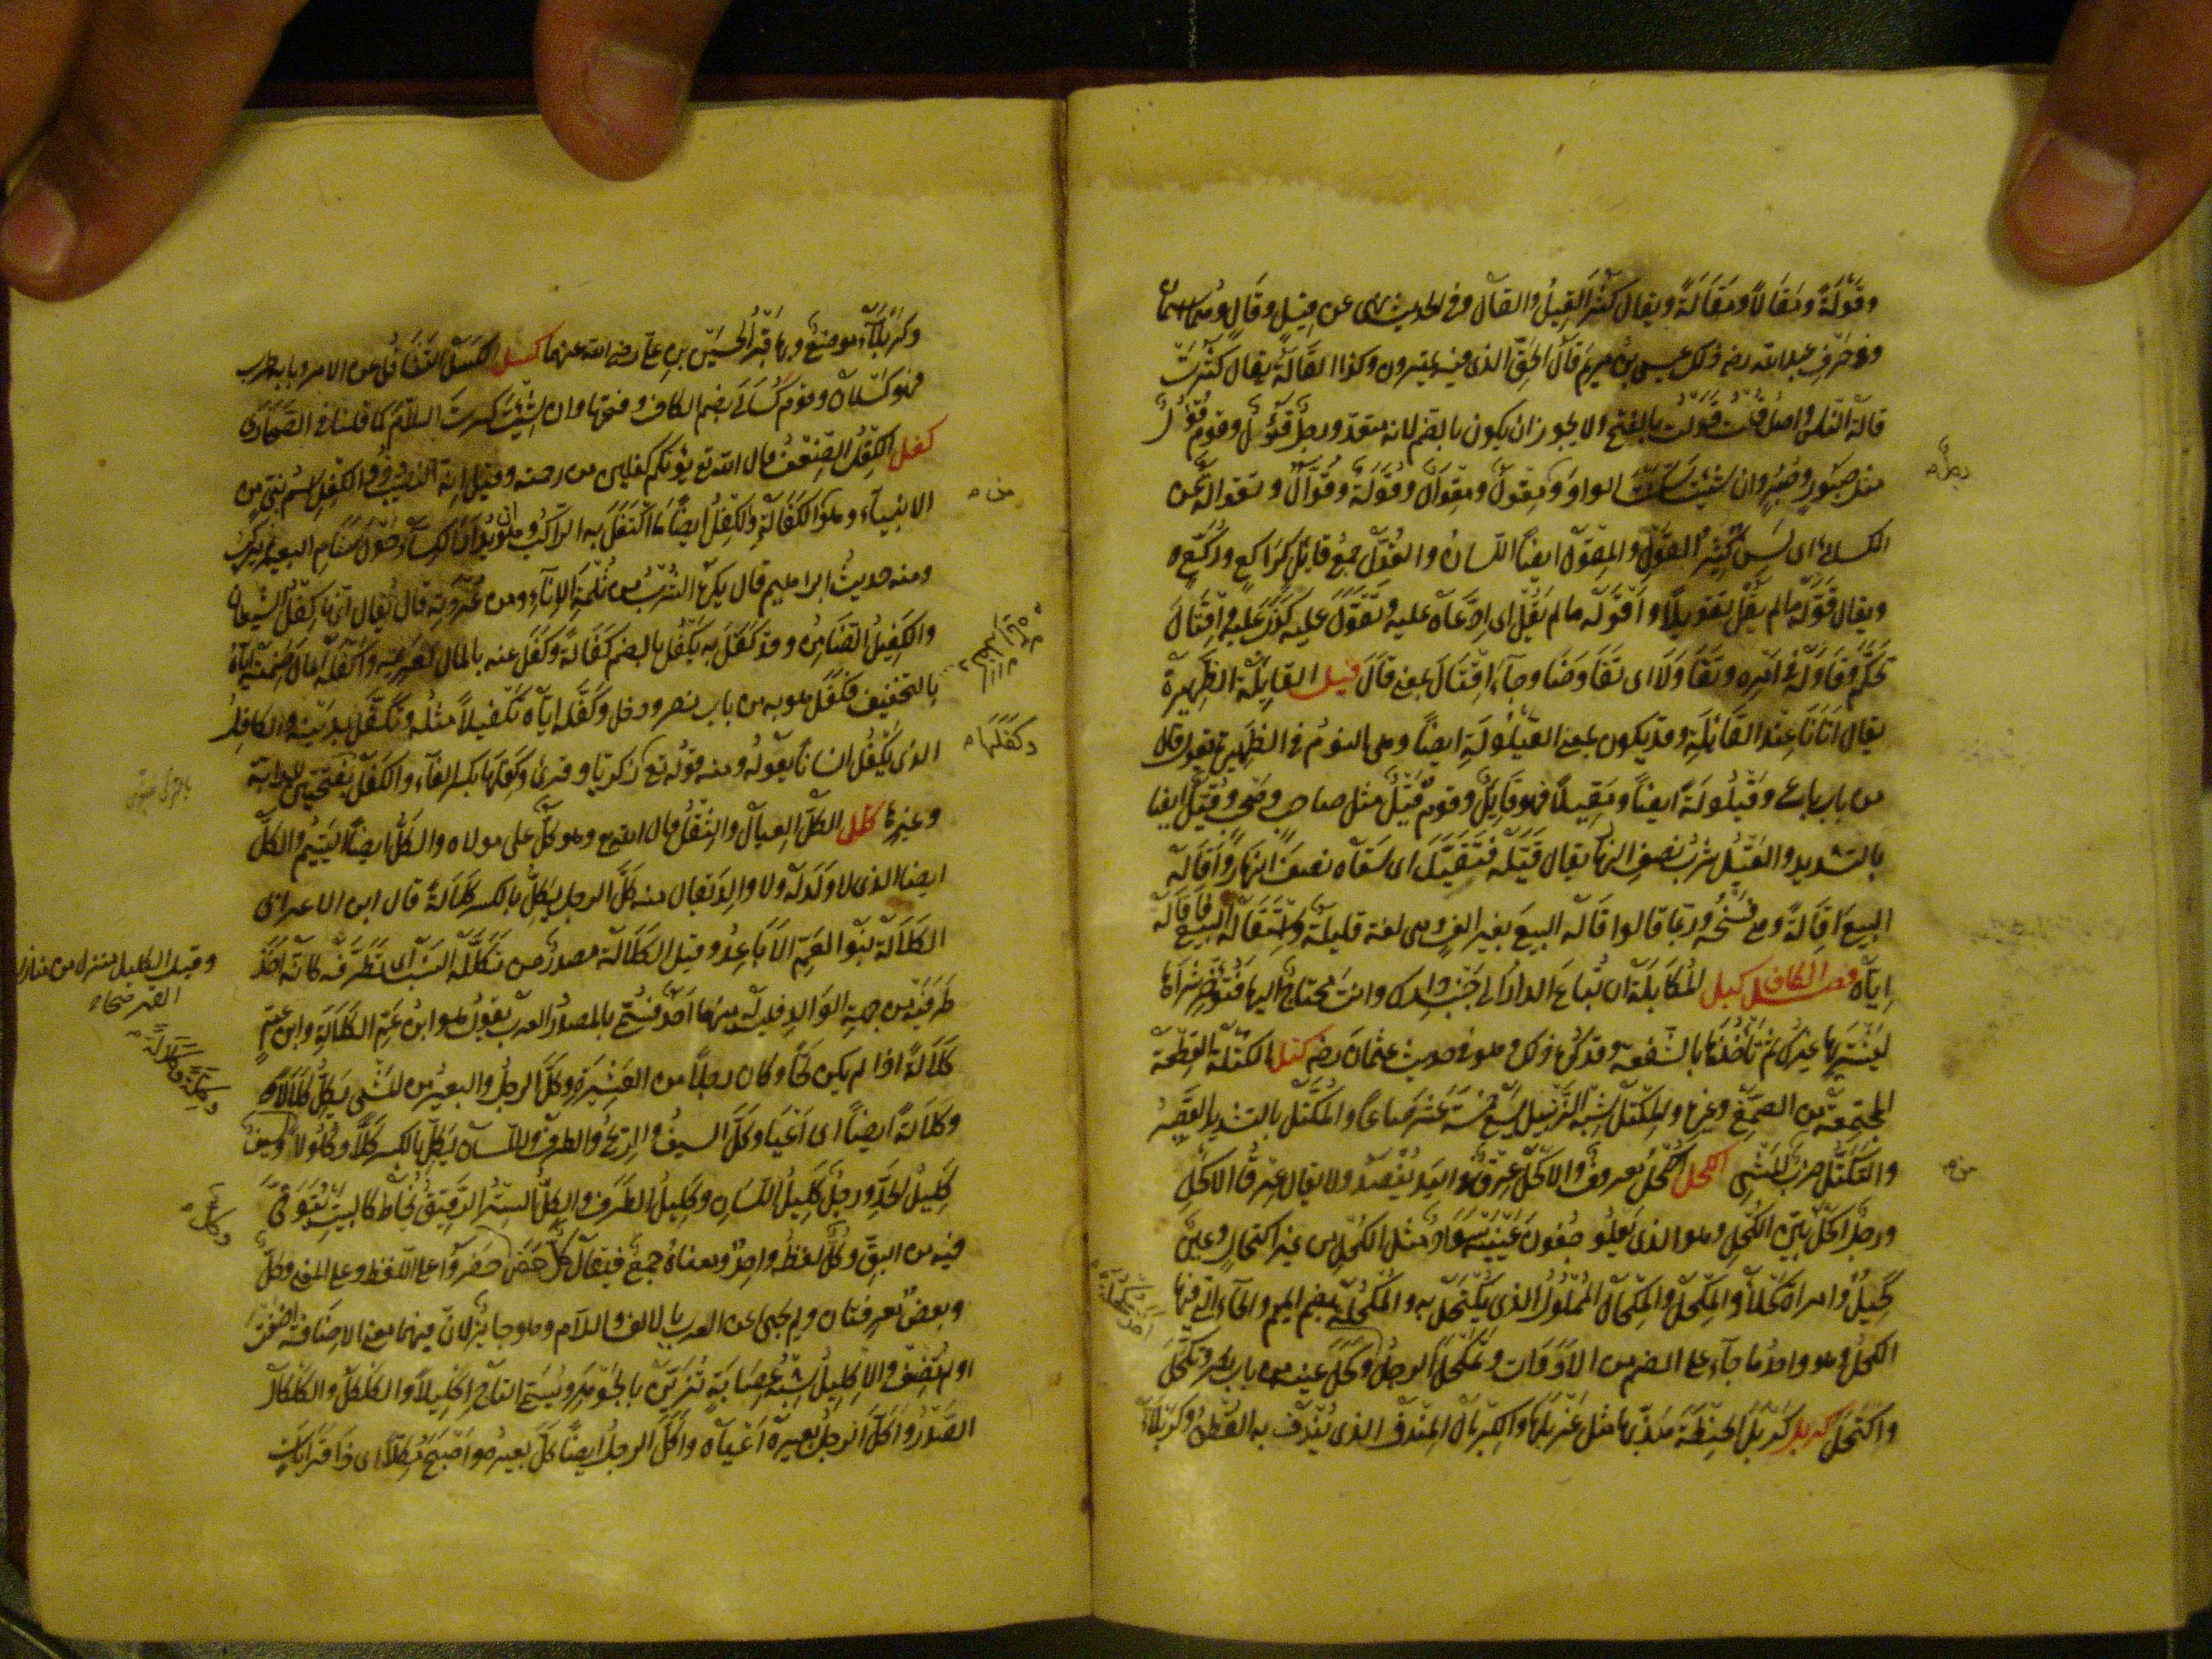 وقَوْلَةً ومَقَالًا ومَقَالَةً ويقال كَثُرَ القِيلُ والقَال وفي الحديث نهى عن قِيل وقَال وهما اسمان
وفي حَرْفِ عبد الله رضه ذلك عيسى بنُ مريم قَالُ الحَقِّ الذى فيه يمترون وكذا القَالَةُ يقال كَثُرَتْ
قالَةُ الناس واصل قلت قَوَلْت بالفتح ولا يجوز ان يكون بالضم لانه متعدّ ورجلٌ قَؤُولٌ وقوم قُوُلٌ
مثل صَبُورٍ وصُبُرٍ وان شئت سكنت الواو ومِقْوَلٌ ومِقْوَالٌ وقُوَلَةٌ وقَوَّالٌ وتَقْوَالَةٌ عن
الكسائى اى لَسِنٌ كثيرُ القَوْلِ والمِقْوَل ايضًا اللسانُ والقُوَّلُ جمعُ قائلٍ كراكعٍ وركّعٍ و
ويقال قَوَّلَه مالم يَقُل تقويلًا وأَقْوَلَه مالم يَقُل اى ادّعاه عليه وتَقَوَّل عليه كَذَب عليه واقْتَالَ
تحكَّم وقَاوَلَهُ في امره وتَقَاوَلَا اى تَفَاوَضَا وجاء اقْتَالَ بمعنى قَالَ قيل القَائِلَةُ الظَّهِيرةُ
يقال اتانا عند القَائِلَةِ وقد يكون بمعنى القَيْلُولَةِ ايضًا وهى النوم في الظهيرة تقول قال
من باب باع وقَيْلُولَةً ايضًا ومَقِيلًا فهو قَائِلٌ وقوم قَيْلٌ مثل صاحب وصحب وقُيَّلٌ ايضا
بالتشديد والقَيْلُ شربُ نصفِ النهار يقال قَيَّلَه فتَقَيَّل اى سقاه نصفَ النهار وأَقَالَهُ
البيعَ اقالةً وهو فَسْخُه وربما قالوا قَالَه البيعَ بغير الف وهى لغة قليلة واسْتَقَالَه البيعَ فأقَالَهُ
اياه فصل الكاف كبل المُكَابَلَةُ ان تُبَاعَ الدارُ الى جَنْبِ دارك وانت محتاجٌ اليها فتُؤَخِّرُ شراءَها
ليشتريها غيرُك ثم تأخُذها بالشفعة وقد كُرِهَ ذلك وهو فى حديث عثمان رضه كتل الكُتْلَةُ القِطعة
المجتمعة من الصَّمْغِ وغيره والمِكْتَلُ شبه الزِّنْبِيل يَسَعُ خمسةَ عشر صاعًا والمُكَتَّلُ بالتشديد القصيرُ
والتَكَتُّلُ ضربٌ من المَشْىِ الكحل الكُحْلُ معروفٌ والاكْحَلُ عِرْقٌ فى اليد يُفْصَدُ ولا يقال عِرْقُ الاكحل
ورجلٌ اكحلُ بيّنُ الكَحَلِ وهو الذى يعلو جُفُونَ عينيه سوادٌ مثل الكُحْلِ من غير اكتحالٍ وعينٌ
كَحِيلٌ وامراة كَحْلَاءُ والمِكْحَلُ والمِكْحَالُ المُلْمُولُ الذى يُكْتَحَلُ به والمُكْحُلَةُ بضم الميم والحاء التى فيها
الكحلُ وهو واحدُ ما جاء على الضم من الادوات وتَمَكْحَلَ الرجلُ وكَحَلَ عينه من باب نصر وتَكَحَّلَ
واكْتَحَلَ كربل كَرْبَلَ الحِنْطَةَ هذّبها مثل غَرْبَلَها والكِرْبَالُ المِنْدَفُ الذى يُنْدَفُ به القُطْنُ وكَرْبَلَاءُ
رجل
من
وكَرْبَلَاءُ موضعٌ وبها قبرُ الحسين بنِ علىّ رضى الله عنهما كسل الكَسَلُ التَّثَاقُلُ عن الامر وبابه طرب
فهو كَسْلَانُ وقوم كُسَالَى بضم الكاف وفتحها وان شئت كسرت اللام كما قلنا فى الصَّحَارِى
كفل الكِفْلُ الضِّعْفُ قال الله تع يؤتكم كفلين من رحمته وقيل انه النصيب وذو الكِفْلِ اسم نبىّ من
الانبياء وهو من الكَفَالَةِ والكِفْلُ ايضًا ما اكْتَفَلَ به الراكبُ وهو ان يُدَارَ الكساء حولَ سَنَامِ البعير ثم يُرْكَبَ
ومنه حديثُ ابراهيم قال يُكْرَهُ الشُّرْبُ من ثُلْمَةِ الاناء ومن عُرْوَتِه قال يُقال انّها كِفْلُ الشيطان
والكَفِيلُ الضامن وقد كَفَلَ به يَكْفُلُ بالضم كَفَالَةً وكَفَلَ عنه بالمال لغريمه وأكفَلَه المالَ ضمَّنه اياه
بالتخفيف فكَفَلَ هو به من باب نصر ودخل وكَفَّلَه اياه تَكْفِيلًا مثلُه وتَكَفَّلَ بدينه والكافِلُ
الذى يَكْفُلُ انسانًا يَعُولُه ومنه قوله تع زكريا وقرئ وكَفِلَها بكسر الفاء والكَفَلُ بفتحتين للدابة
وغيرها كلل الكَلُّ العِيَالُ والثِّقْلُ قال الله تع وهو كلّ على مولاه والكَلُّ ايضًا اليَتِيمُ والكَلُّ
ايضا الذى لا ولد له ولا والد يقال منه كَلَّ الرجل يَكِلُّ بالكسر كَلَالَةً قال ابن الاعرابى
الكَلَالَةُ بنو العَمِّ الاباعِدُ وقيل الكَلَالَة مصدرٌ من تَكَلَّلَه النسبُ اى تَطَرَّفَه كأنه اخذ
طَرَفَيْه من جهة الوالد والولد فليس له منهما احدٌ فسُمِّى بالمصدر والعرب تقول هو ابنُ عَمِّ الكَلَالَةِ وابن عَمٍّ
كَلَالَةً اذا لم يكن لَحًّا وكان رجلًا من العَشِيرة وكَلَّ الرجلُ والبعيرُ من المَشْى يَكِلُّ كَلَالًا
وكَلَالَةً ايضًا اى أعْيَا وكَلَّ السيفُ والرمحُ والطرفُ واللسان يَكِلُّ بالكسر كَلًّا وكُلُولًا وسيفٌ
كَلِيلُ الحَدِّ ورجلٌ كَلِيلُ اللسان وكَلِيلُ الطرف والكِلَّةُ السِّتْرُ الرقيقُ يُخاطُ كالبيت يُتَوَقَّى
فيه من البقّ وكُلٌّ لفظُه واحدٌ ومعناه جمعٌ فيقال كُلٌّ حَضَرَ وكلّ حضروا على اللفظ وعلى المعنى وكلٌّ
وبعضٌ معرفتان ولم يجئ عن العرب بالالف واللام وهو جائزٌ لان فيهما معنى الاضافة اضفت
او لم تُضِفْ والاِكْلِيلُ شِبْهُ عِصَابَةٍ تُزَيَّنُ بالجوهر ويُسَمَّى التاجُ اِكْلِيلًا والكَلْكَلُ والكَلْكَالُ
الصَّدْرُ وأكَلَّ الرجلُ بعيرَه أعْيَاه وأكَلَّ الرجلُ ايضًا كَلَّ بعيرُه واصبح مُكِلًّا اى ذا قراباتٍ
من
وكَفَلَها
وقيل الاكليل منزل من منازل
القمر صحاح